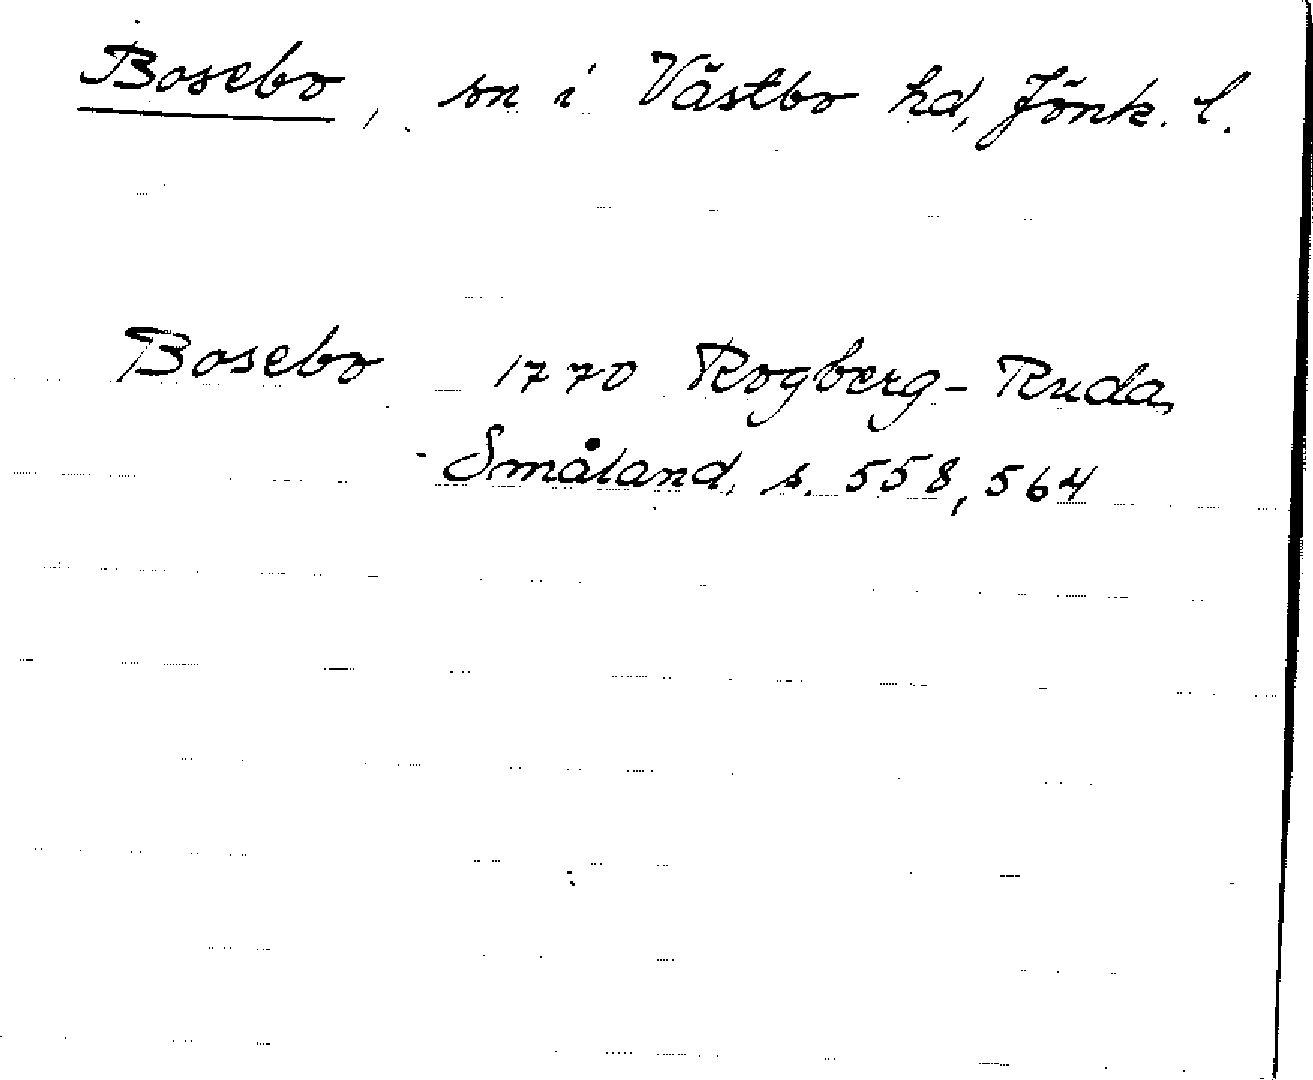 Bosebo, sn i Västbo hd, Jönk. l.
Bosebo 1770 Rogberg-Ruda,
Småland, s. 558, 564